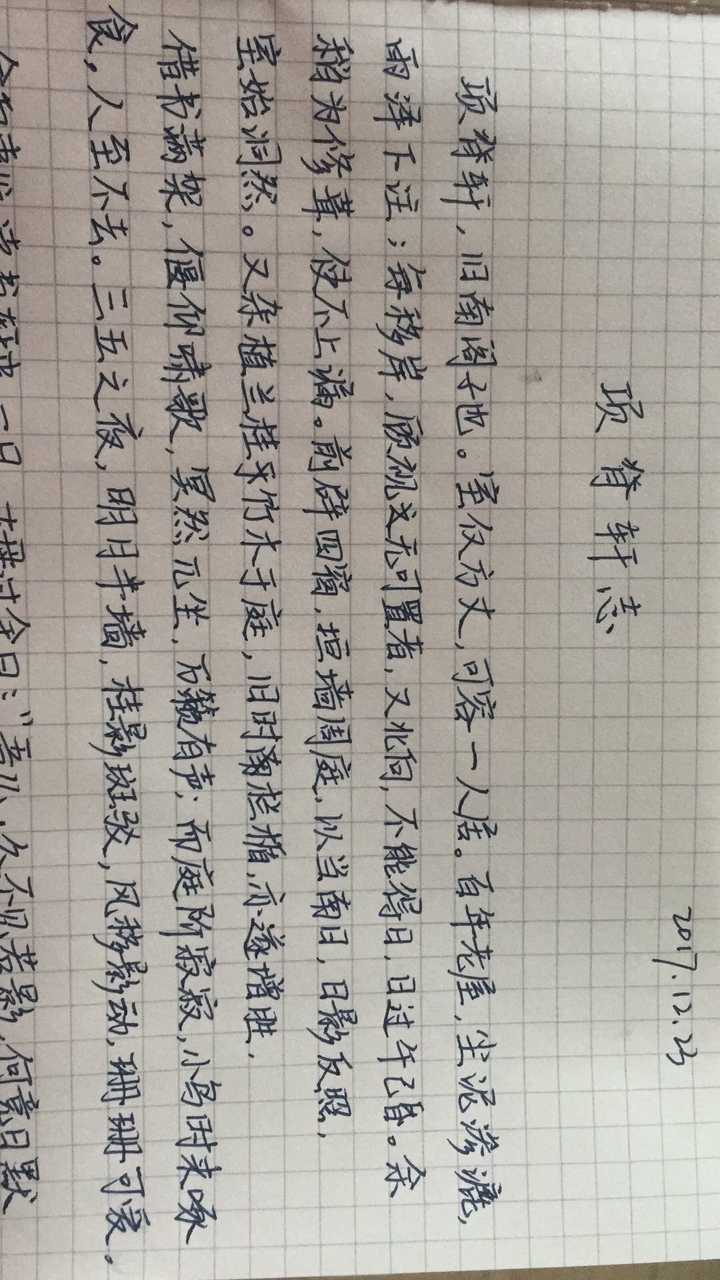 2017.12.23
项脊轩志
项脊轩,旧南阁子也。室仅方丈,可容一人居。百年老屋,尘泥渗漉,
雨泽下注;每移岸,顾视文无可置者,又北向,不能得日,日过午已昏。余
稍为修葺,使不上漏。前辟四窗,垣墙周庭,以当南日,日影反照,
室始洞然。又杂植兰桂乎竹木于庭,旧时阑栏楯,亦遂增胜,
借书满架,偃仰啸歌,冥然兀坐,万籁有声;而庭阶寂寂,小鸟时来啄
食,人至不去。三五之夜,明月半墙,桂影斑驳,风移影动,珊珊可爱。
一日,大母过余曰:“吾儿,久不见若影,何竟日默